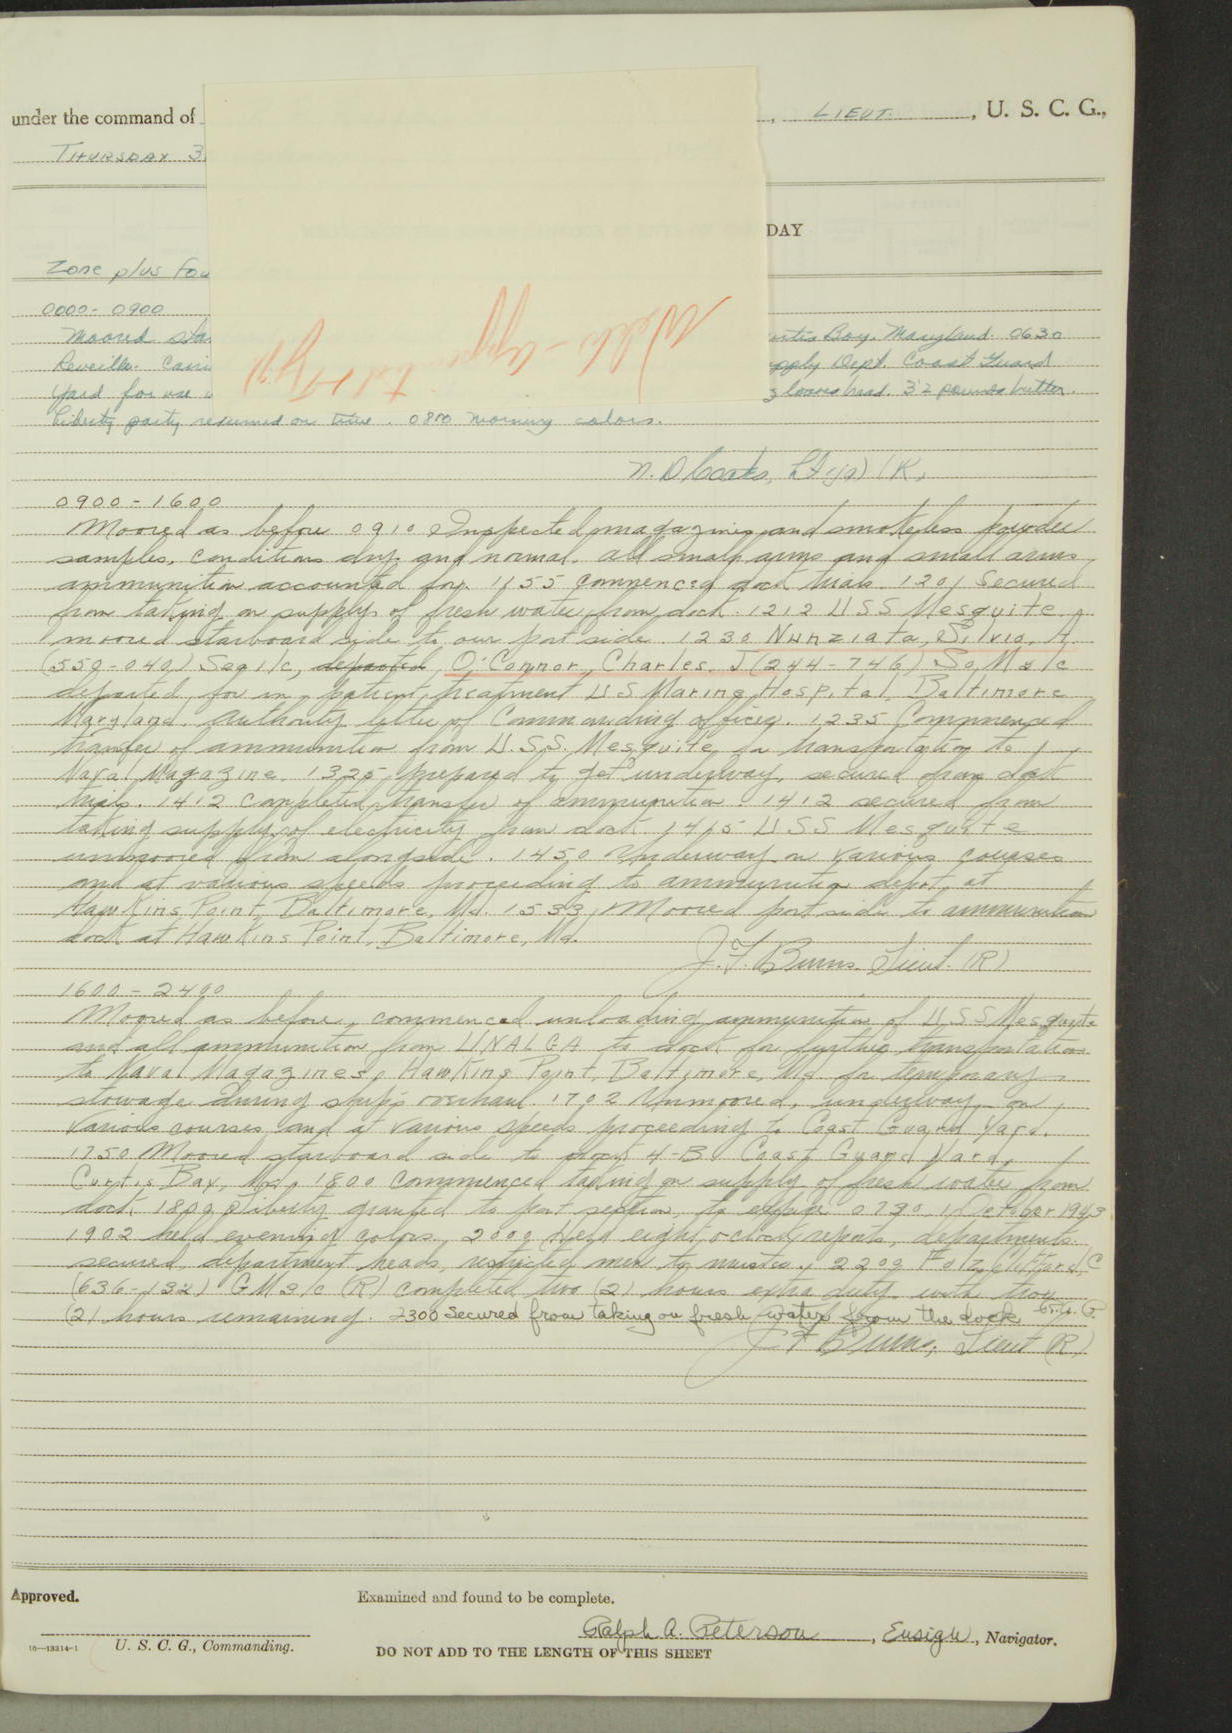 under the command of , LIEUT. , U. S. C. G.,
THURSDAY 3
DAY
Zone plus fou
0000 - 0900
Moored sta Bay, Maryland. 0630
Reveille. Dept. Coast Guard
Yard for use loaves bread. 32 pounds butter.
Liberty party returned on time. 0800 morning colors.
0900 - 1600
Moored as before 0910 Inspected magazines and smokeless powder
samples, conditions dry and normal. All small arms and small arms
ammunition accounted for. 1155 commenced dock trials. 1201 Secured
from taking on supply of fresh water from dock. 1212 USS Mesquite
moored starboard side to our port side. 1230 Nunziata, Silvio, A.
(550-040) Sea 1/c, departed, O'Connor, Charles, J (244-746) So M 2/c
departed for in patient treatment U S Marine Hospital, Baltimore
Maryland. Authority letter of Commanding officer. 1235 Commenced
transfer of ammunition from U.S.S. Mesquite for transportation to
Naval Magazine. 1325 prepared to get underway, secured from dock
trials. 1412 completed transfer of ammunition. 1412 secured from
taking supply of electricity from dock 1415 USS Mesquite
unmoored from alongside. 1450 Underway on various courses
and at various speeds proceeding to ammunition depot, at
Hawkins Point, Baltimore, Md. 1533, Moored port side to ammunition
dock at Hawkins Point, Baltimore, Md.
J. F. Burns. Lieut. (R)
1600 - 2400
Moored as before, commenced unloading ammunition of USS Mesquite
and all ammunition from UNALGA to dock for further transportation
to Naval Magazines, Hawkins Point, Baltimore, Md. for temporary
stowage during ship's overhaul. 1702 Unmoored, underway on
various courses and at various speeds proceeding to Coast Guard Yard.
1750 Moored starboard side to dock 4-B Coast Guard Yard,
Curtis Bay, Md. 1800 commenced taking on supply of fresh water from
dock. 1800 Liberty granted to port section, to expire 0730, 1 October 1943
1902 held evening colors, 2000 Held eight o'clock reports, departments
secured, department heads, restricted men to muster. 2200 Foltz, Clifford, C
(636-132) GM3/c (R) completed two (2) hours extra duty with two
(2) hours remaining 2300 Secured from taking on fresh water from the dock
J F Burns, Lieut (R)
Approved.
Examined and found to be complete.
Ralph A. Peterson , Ensign , Navigator.
16—13214-1 U. S. C. G., Commanding.
DO NOT ADD TO THE LENGTH OF THIS SHEET